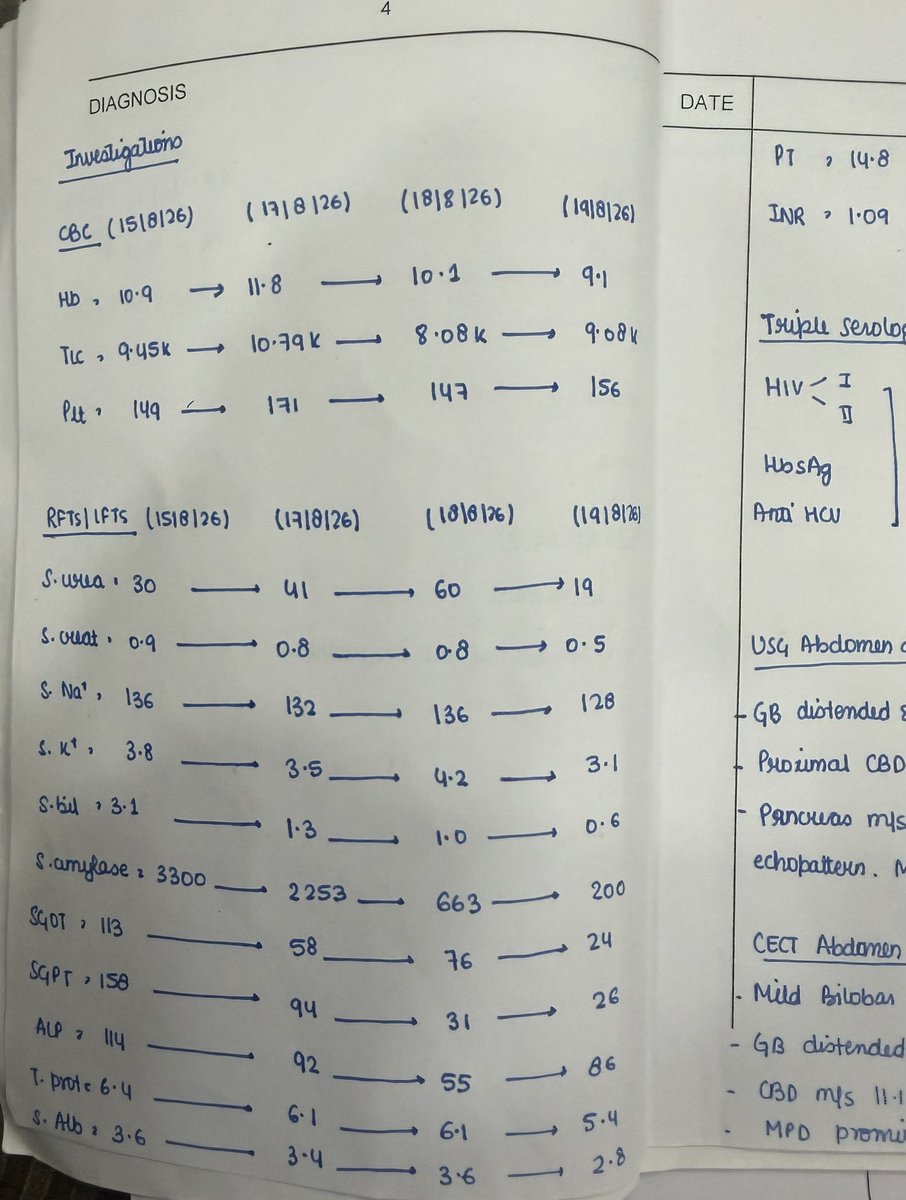 4
DIAGNOSIS
Investigations
CBC (15/8/26) (17/8/26) (18/8/26) (19/8/26)
Hb, 10.9 → 11.8 → 10.1 → 9.1
TLC, 9.45K → 10.79K → 8.08K → 9.08K
Plt, 149 → 171 → 147 → 156
RFTs/LFTs (15/8/26) (17/8/26) (18/8/26) (19/8/26)
S. urea, 30 → 41 → 60 → 19
S. creat, 0.9 → 0.8 → 0.8 → 0.5
S. Na⁺, 136 → 132 → 136 → 128
S. K⁺, 3.8 → 3.5 → 4.2 → 3.1
S. bil, 3.1 → 1.3 → 1.0 → 0.6
S. amylase, 3300 → 2253 → 663 → 200
SGOT, 113 → 58 → 76 → 24
SGPT, 158 → 94 → 31 → 26
ALP, 114 → 92 → 55 → 86
T. prot, 6.4 → 6.1 → 6.1 → 5.4
S. Alb, 3.6 → 3.4 → 3.6 → 2.8
DATE
PT, 14.8
INR, 1.09
Triple Serolog
HIV < I
II
HbsAg
Anti HCV
USG Abdomen
- GB distended
- Proximal CBD
- Pancreas m/s
echopattern. M
CECT Abdomen
- Mild Bilobar
- GB distended
- CBD m/s 11.1
- MPD promi